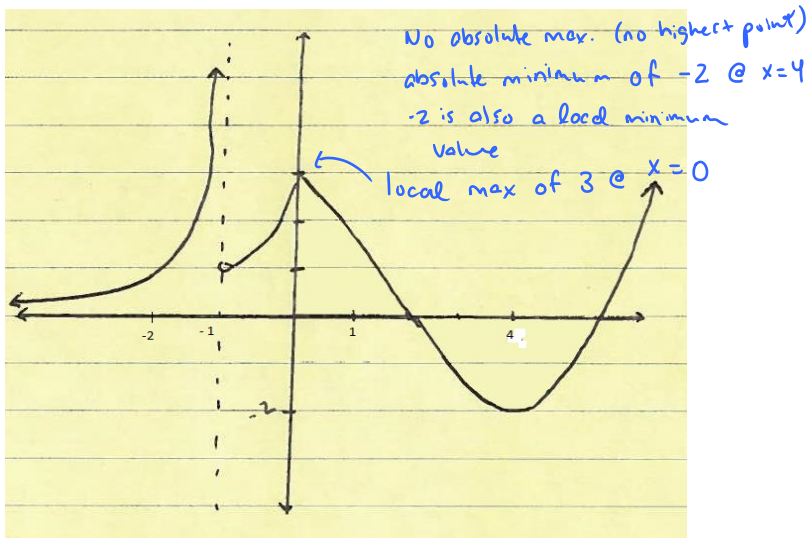 No absolute max. (no highest point)
absolute minimum of -2 @ x=4
-2 is also a local minimum
value
local max of 3 @ x=0
-2 -1 1 4
-2